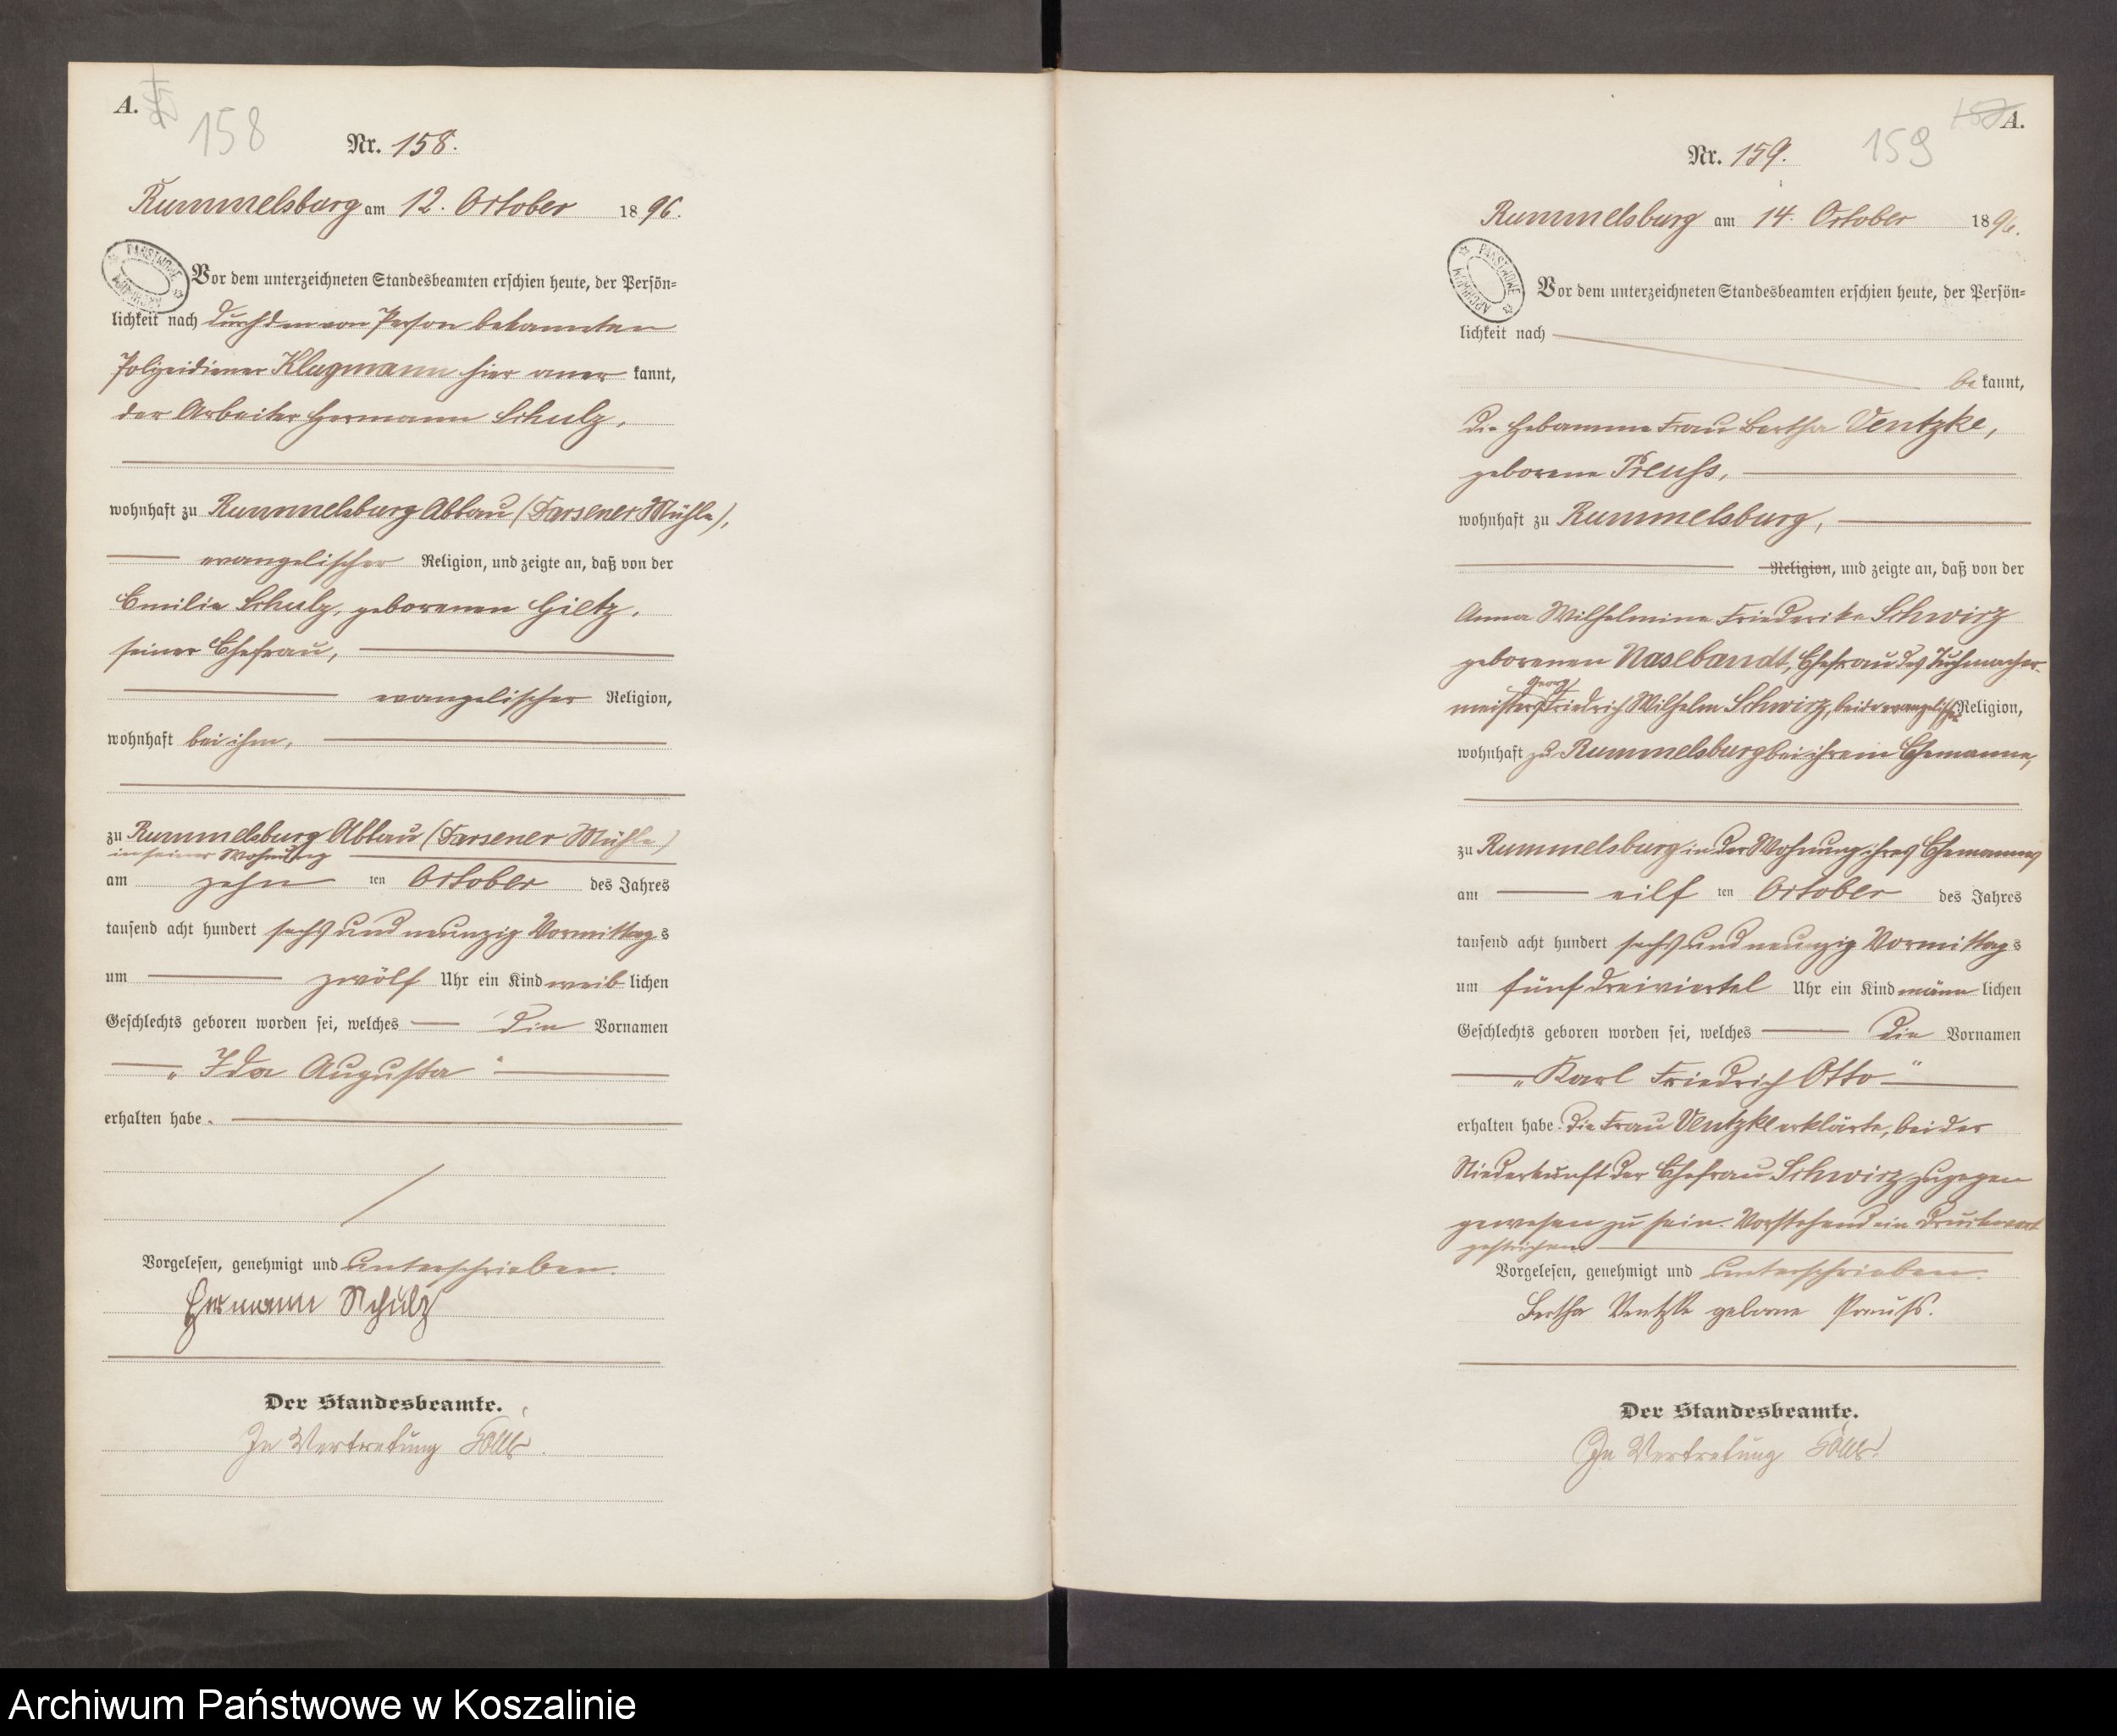 A.
158
Nr. 158.
Rummelsburg am 12. October 1896.
PAŃSTWOWE ARCHIWUM
Vor dem unterzeichneten Standesbeamten erschien heute, der Persön-
lichkeit nach durch den von Person bekannten
Polizeidiener Klugmann hier aner kannt,
der Arbeiter Hermann Schulz,
wohnhaft zu Rummelsburg Abbau (Darsener Mühle),
evangelischer Religion, und zeigte an, daß von der
Emilie Schulz, geborenen Gietz,
seiner Ehefrau,
evangelischer Religion,
wohnhaft bei ihm,
zu Rummelsburg Abbau (Darsener Mühle)
in seiner Wohnung
am zehn ten October des Jahres
tausend acht hundert sechs und neunzig Vormittag s
um zwölf Uhr ein Kind weib lichen
Geschlechts geboren worden sei, welches die Vornamen
„Ida Augusta“
erhalten habe.
Vorgelesen, genehmigt und unterschrieben.
Hermann Schulz
Der Standesbeamte.
In Vertretung
A.
159
Nr. 159.
Rummelsburg am 14. October 1896.
PAŃSTWOWE ARCHIWUM
Vor dem unterzeichneten Standesbeamten erschien heute, der Persön-
lichkeit nach
be kannt,
die Hebamme Frau Bertha Ventzke,
geborene Preuss,
wohnhaft zu Rummelsburg,
Religion, und zeigte an, daß von der
Anna Wilhelmine Friederike Schwirz
geborenen Nasebandt, Ehefrau des Tuchmacher-
meisters Georg Friedrich Wilhelm Schwirz, beide evangelischer Religion,
wohnhaft zu Rummelsburg bei ihrem Ehemanne,
zu Rummelsburg in der Wohnung ihres Ehemannes
am eilf ten October des Jahres
tausend acht hundert sechs und neunzig Vormittag s
um fünf dreiviertel Uhr ein Kind männ lichen
Geschlechts geboren worden sei, welches die Vornamen
„Karl Friedrich Otto“
erhalten habe. Die Frau Ventzke erklärte, bei der
Niederkunft der Ehefrau Schwirz zugegen
gewesen zu sein. Vorstehend ein Druckwort
gestrichen.
Vorgelesen, genehmigt und unterschrieben.
Bertha Ventzke geborne Preuss.
Der Standesbeamte.
In Vertretung
Archiwum Państwowe w Koszalinie